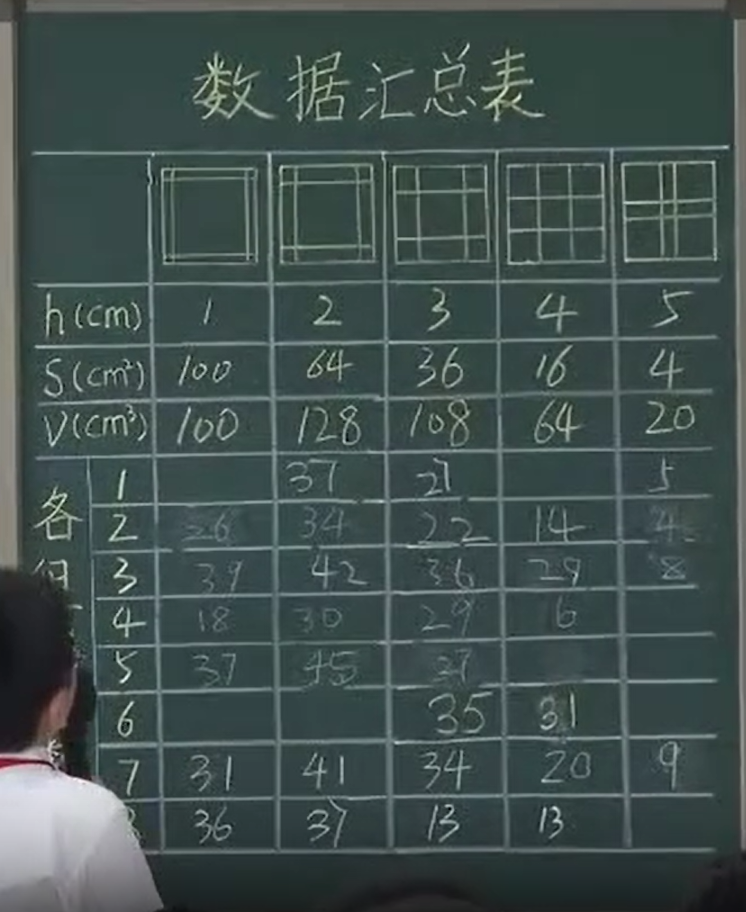 数据汇总表
h(cm) 1 2 3 4 5
S(cm²) 100 64 36 16 4
V(cm³) 100 128 108 64 20
各
1 37 21 5
2 26 34 22 14 4
3 39 42 36 29 8
4 18 30 29 6
5 37 45 37
6 35 31
7 31 41 34 20 9
36 37 13 13